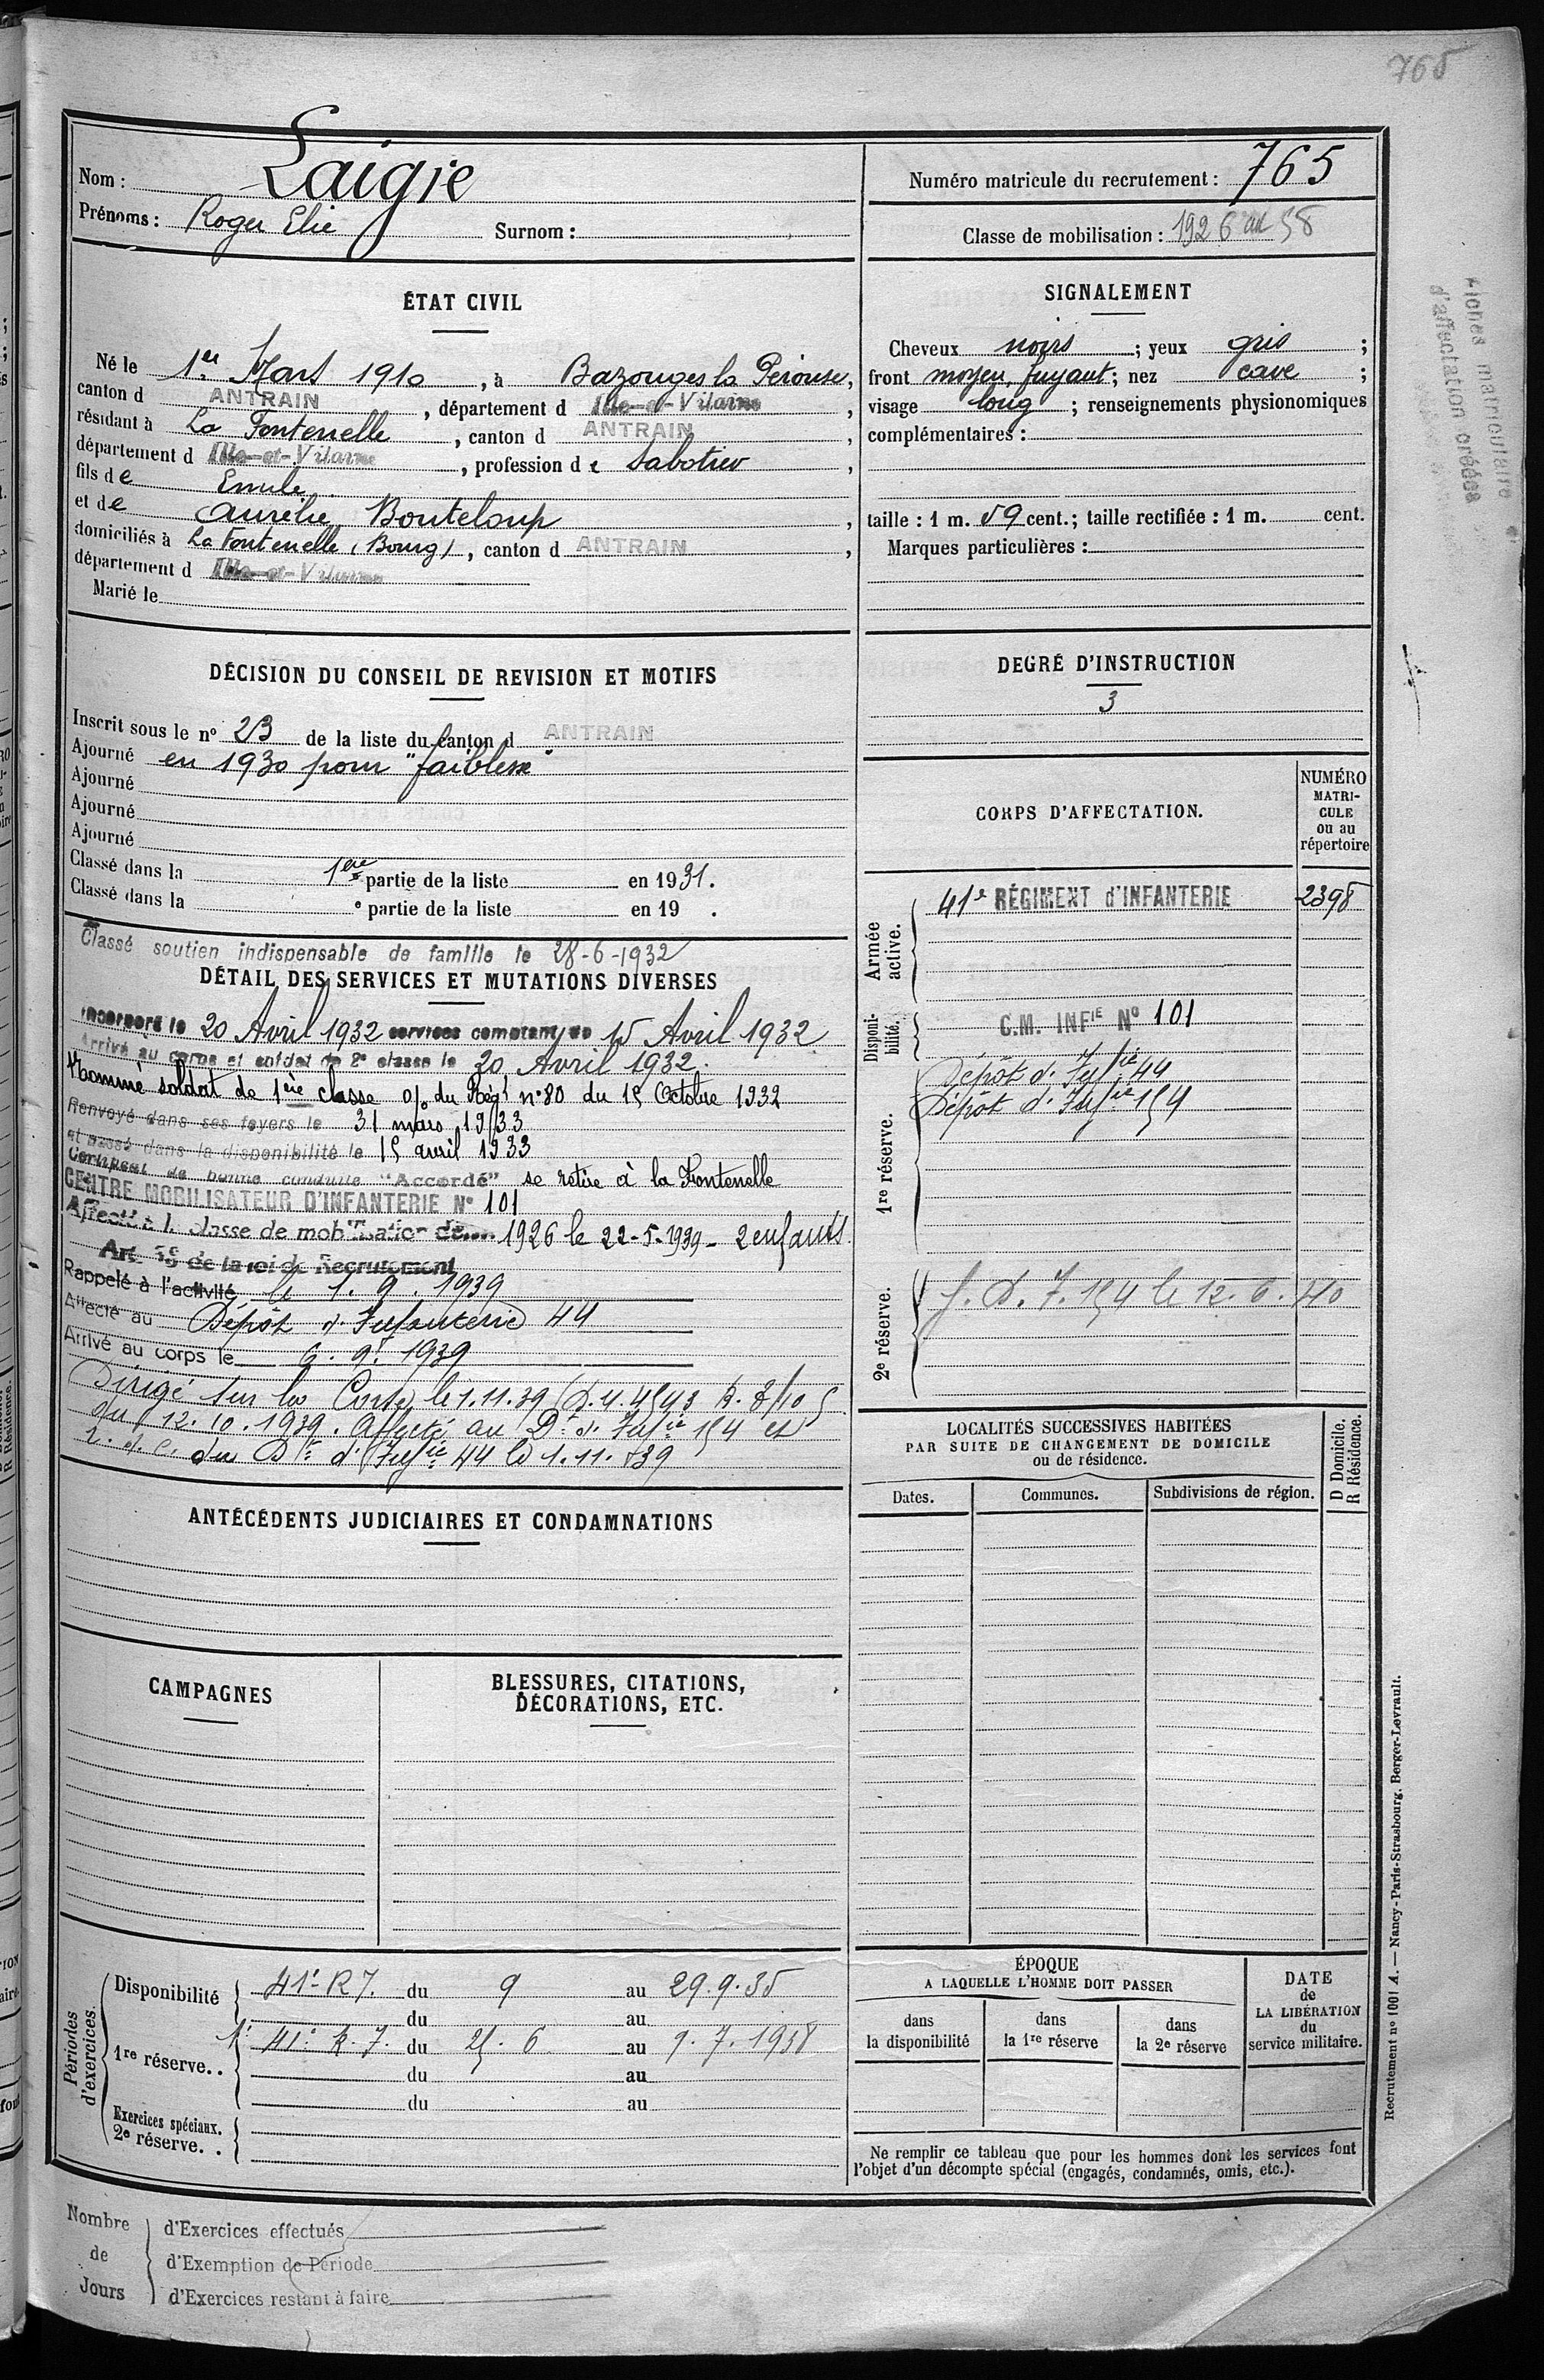 765
Nom : Laigre
Prénoms : Roger Elie Surnom :
Numéro matricule du recrutement : 765
Classe de mobilisation : 1926 art 58
ÉTAT CIVIL
Né le 1er Mars 1910, à Bazouges la Pérouse,
canton d ANTRAIN, département d Ille-et-Vilaine,
résidant à La Fontenelle, canton d ANTRAIN,
département d Ille-et-Vilaine, profession de Sabotier,
fils de Emile
et de Aurélie Bouteloup,
domiciliés à La Fontenelle (Bourg), canton d ANTRAIN,
département d Ille-et-Vilaine
Marié le
SIGNALEMENT
Cheveux noirs ; yeux gris ;
front moyen, fuyant ; nez cave ;
visage long ; renseignements physionomiques
complémentaires :
taille : 1 m. 59 cent. ; taille rectifiée : 1 m. cent.
Marques particulières :
matriculaire
d'affectation créées
DÉCISION DU CONSEIL DE REVISION ET MOTIFS
Inscrit sous le nº 23 de la liste du canton d ANTRAIN
Ajourné en 1930 pour "faiblesse"
Ajourné
Ajourné
Ajourné
Classé dans la 1ère partie de la liste en 1931.
Classé dans la e partie de la liste en 19 .
Classé soutien indispensable de famille le 28-6-1932
DEGRÉ D'INSTRUCTION
3
DÉTAIL DES SERVICES ET MUTATIONS DIVERSES
Incorporé le 20 Avril 1932 services comptant du 15 Avril 1932
Arrivé au corps et soldat de 2e classe le 20 Avril 1932.
Nommé soldat de 1ère classe o/ du Régt nº 80 du 15 Octobre 1932
Renvoyé dans ses foyers le 31 mars 1933
et passé dans la disponibilité le 15 avril 1933
Certificat de bonne conduite "Accordé" se retire à la Fontenelle
CENTRE MOBILISATEUR D'INFANTERIE Nº 101
Affecté à la classe de mobilisation de 1926 le 22-5-1939 - 2 enfants
Art. 58 de la loi de Recrutement
Rappelé à l'activité le 1.9.1939
Affecté au Dépôt d'Infanterie 44
Arrivé au corps le 6.9.1939
Dirigé sur la Corse le 1.11.39
du 12.10.1939. Affecté au Dt d'Infie 154 et
r.d.c. du Dt d'Infie 44 le 1.11.39
CORPS D'AFFECTATION.
NUMÉRO
MATRI-
CULE
ou au
répertoire
Armée
active.
41e RÉGIMENT d'INFANTERIE 2398
Disponi-
bilité.
C.M. INFIE Nº 101
1re réserve.
Dépôt d'Infie 44
Dépôt d'Infie 154
2e réserve.
154 le 12.6.40
LOCALITÉS SUCCESSIVES HABITÉES
PAR SUITE DE CHANGEMENT DE DOMICILE
ou de résidence.
D Domicile.
R Résidence.
Dates. Communes. Subdivisions de région.
ANTÉCÉDENTS JUDICIAIRES ET CONDAMNATIONS
CAMPAGNES
BLESSURES, CITATIONS,
DÉCORATIONS, ETC.
Périodes
d'exercices.
Disponibilité 41e R.I. du 9 au 29.9.35
du au
1re réserve.. 1º 41e R.I. du 25.6 au 9.7.1938
du au
du au
Exercices spéciaux.
2e réserve. .
ÉPOQUE
A LAQUELLE L'HOMME DOIT PASSER
dans
la disponibilité
dans
la 1re réserve
dans
la 2e réserve
DATE
de
LA LIBÉRATION
du
service militaire.
Ne remplir ce tableau que pour les hommes dont les services font
l'objet d'un décompte spécial (engagés, condamnés, omis, etc.).
Recrutement nº 1001 A. — Nancy-Paris-Strasbourg, Berger-Levrault.
Nombre
de
Jours
d'Exercices effectués
d'Exemption de Période
d'Exercices restant à faire